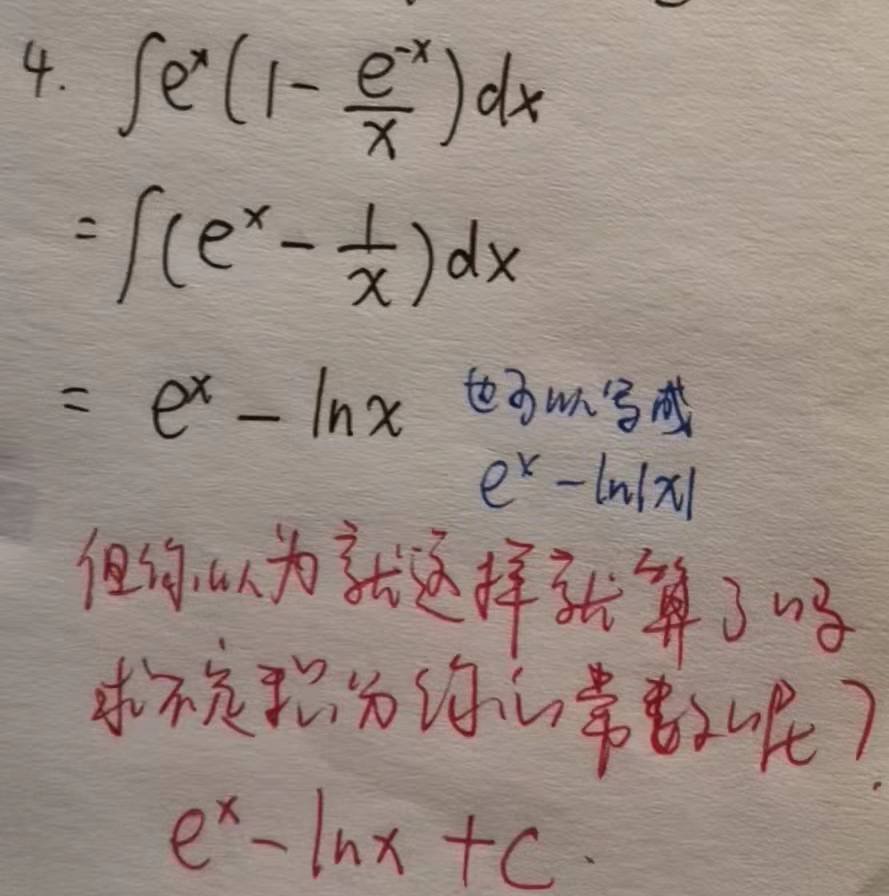 4. ∫eˣ(1 - e⁻ˣ/x)dx
= ∫(eˣ - 1/x)dx
= eˣ - lnx 也可以写成
eˣ - ln|x|
但你以为就这样就算了吗
求不定积分你的常数呢？
eˣ - lnx + C.